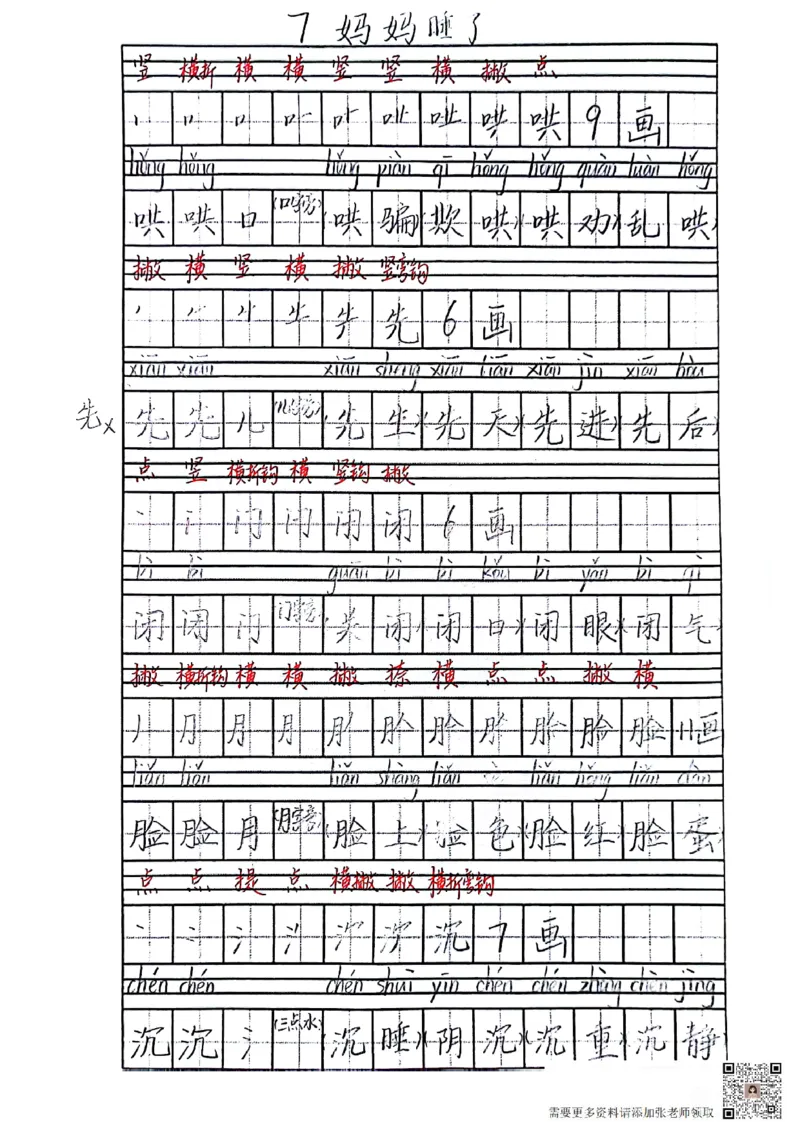 7 妈妈睡了
竖 横折 横 横 竖 竖 横 撇 点
哄 哄 9 画
hǒng hǒng hǒng piàn qī hǒng hǒng quàn luàn hǒng
哄 哄 口 (口字旁) (哄 骗)(欺 哄)(哄 劝)(乱 哄)
撇 横 竖 横 撇 竖弯钩
先 6 画
xiān xiān xiān sheng xiān tiān xiān jìn xiān hòu
先x 先 先 儿 (儿字旁) (先 生)(先 天)(先 进)(先 后)
点 竖 横折钩 横 竖钩 撇
门 闭 闭 6 画
bì bì guān bì bì kǒu bì yǎn bì qì
闭 闭 门 门字旁 关 闭 (闭 口)(闭 眼)(闭 气)
撇 横折钩 横 横 撇 捺 横 点 点 撇 横
月 脸 脸 11画
liǎn liǎn liǎn shàng liǎn liǎn hóng liǎn dàn
脸 脸 月 (月字旁) (脸 上)(脸 色)(脸 红)(脸 蛋)
点 点 提 点 横撇 撇 横折弯钩
氵 沉 7 画
chén chén chén shuì yīn chén chén zhòng chén jìng
沉 沉 氵 (三点水) (沉 睡)(阴 沉)(沉 重)(沉 静)
需要更多资料请添加张老师领取